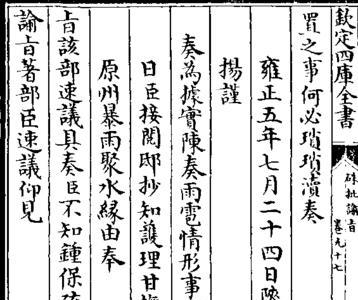 欽定四庫全書
硃批諭旨
卷九十七
置之事何必瑣瑣瀆奏
雍正五年七月二十四日
揚謹
奏為據實陳奏雨雹情形事
日臣接閱邸抄知護理甘
原州暴雨聚水緣由奉
旨該部速議具奏臣不知鍾保
諭旨著部臣速議仰見